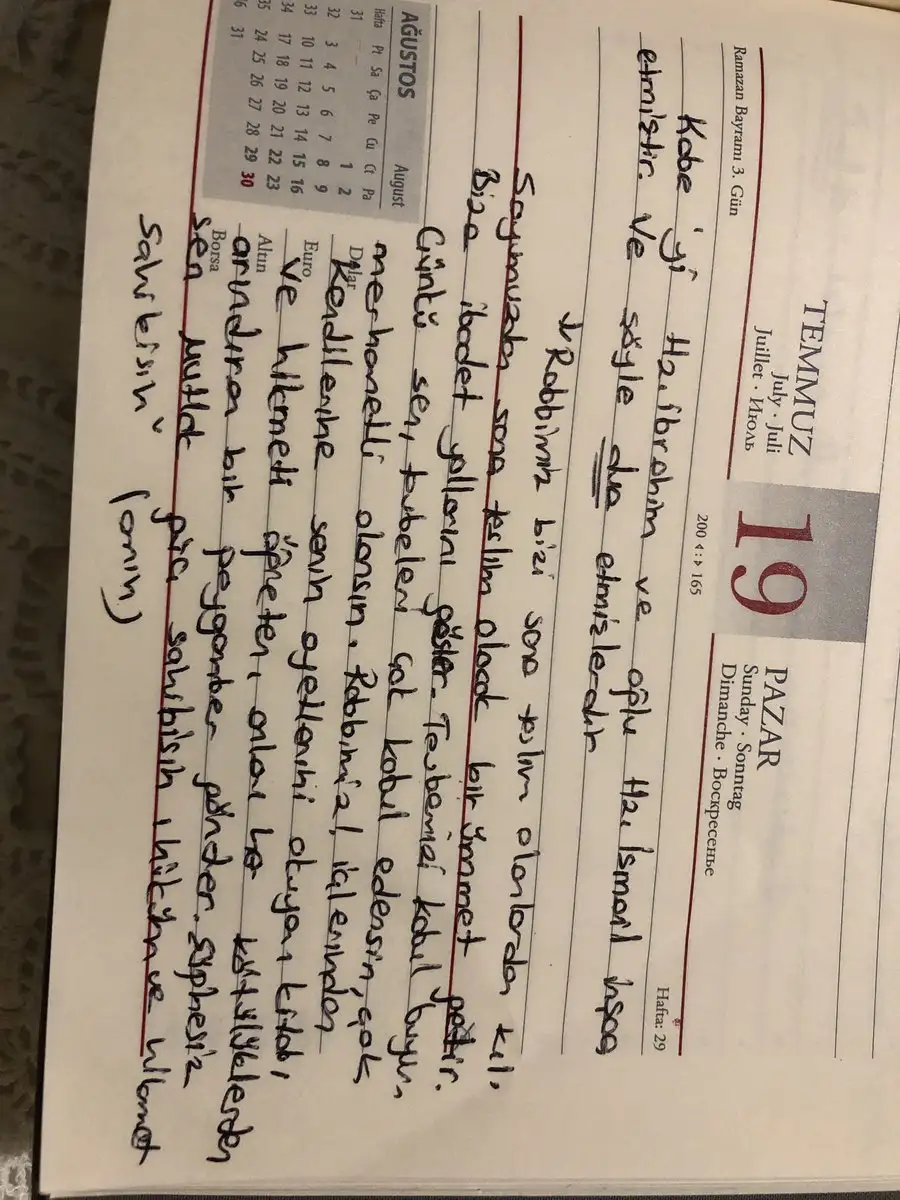 TEMMUZ
July · Juli
Juillet · Июль
19
PAZAR
Sunday · Sonntag
Dimanche · Воскресенье
Ramazan Bayramı 3. Gün
200 ‹:› 165
Hafta: 29
Kabe'yi Hz. ibrahim ve oğlu Hz. ismail inşaa
etmiştir. Ve şöyle dua etmişlerdir
↓ Rabbimiz bizi sana teslim olanlardan kıl,
Soyumuzdan sana teslim olacak bir ümmet getir.
Bize ibadet yollarını göster. Tevbemizi kabul buyur,
Çünkü sen, tevbeleri çok kabul edensin, çok
merhametli olansın. Rabbimiz! içlerinden
Kendilerine senin ayetlerini okuyan kitabı,
Ve hikmeti öğreten, onları her kötülüklerden
arındıran bir peygamber gönder. Şüphesiz
sen mutlak güç sahibisin, hüküm ve hikmet
Sahibisin (amin)
Dolar
Euro
Altın
Borsa
AĞUSTOS August
Hafta Pt Sa Ça Pe Cu Ct Pa
31 1 2
32 3 4 5 6 7 8 9
33 10 11 12 13 14 15 16
34 17 18 19 20 21 22 23
35 24 25 26 27 28 29 30
36 31